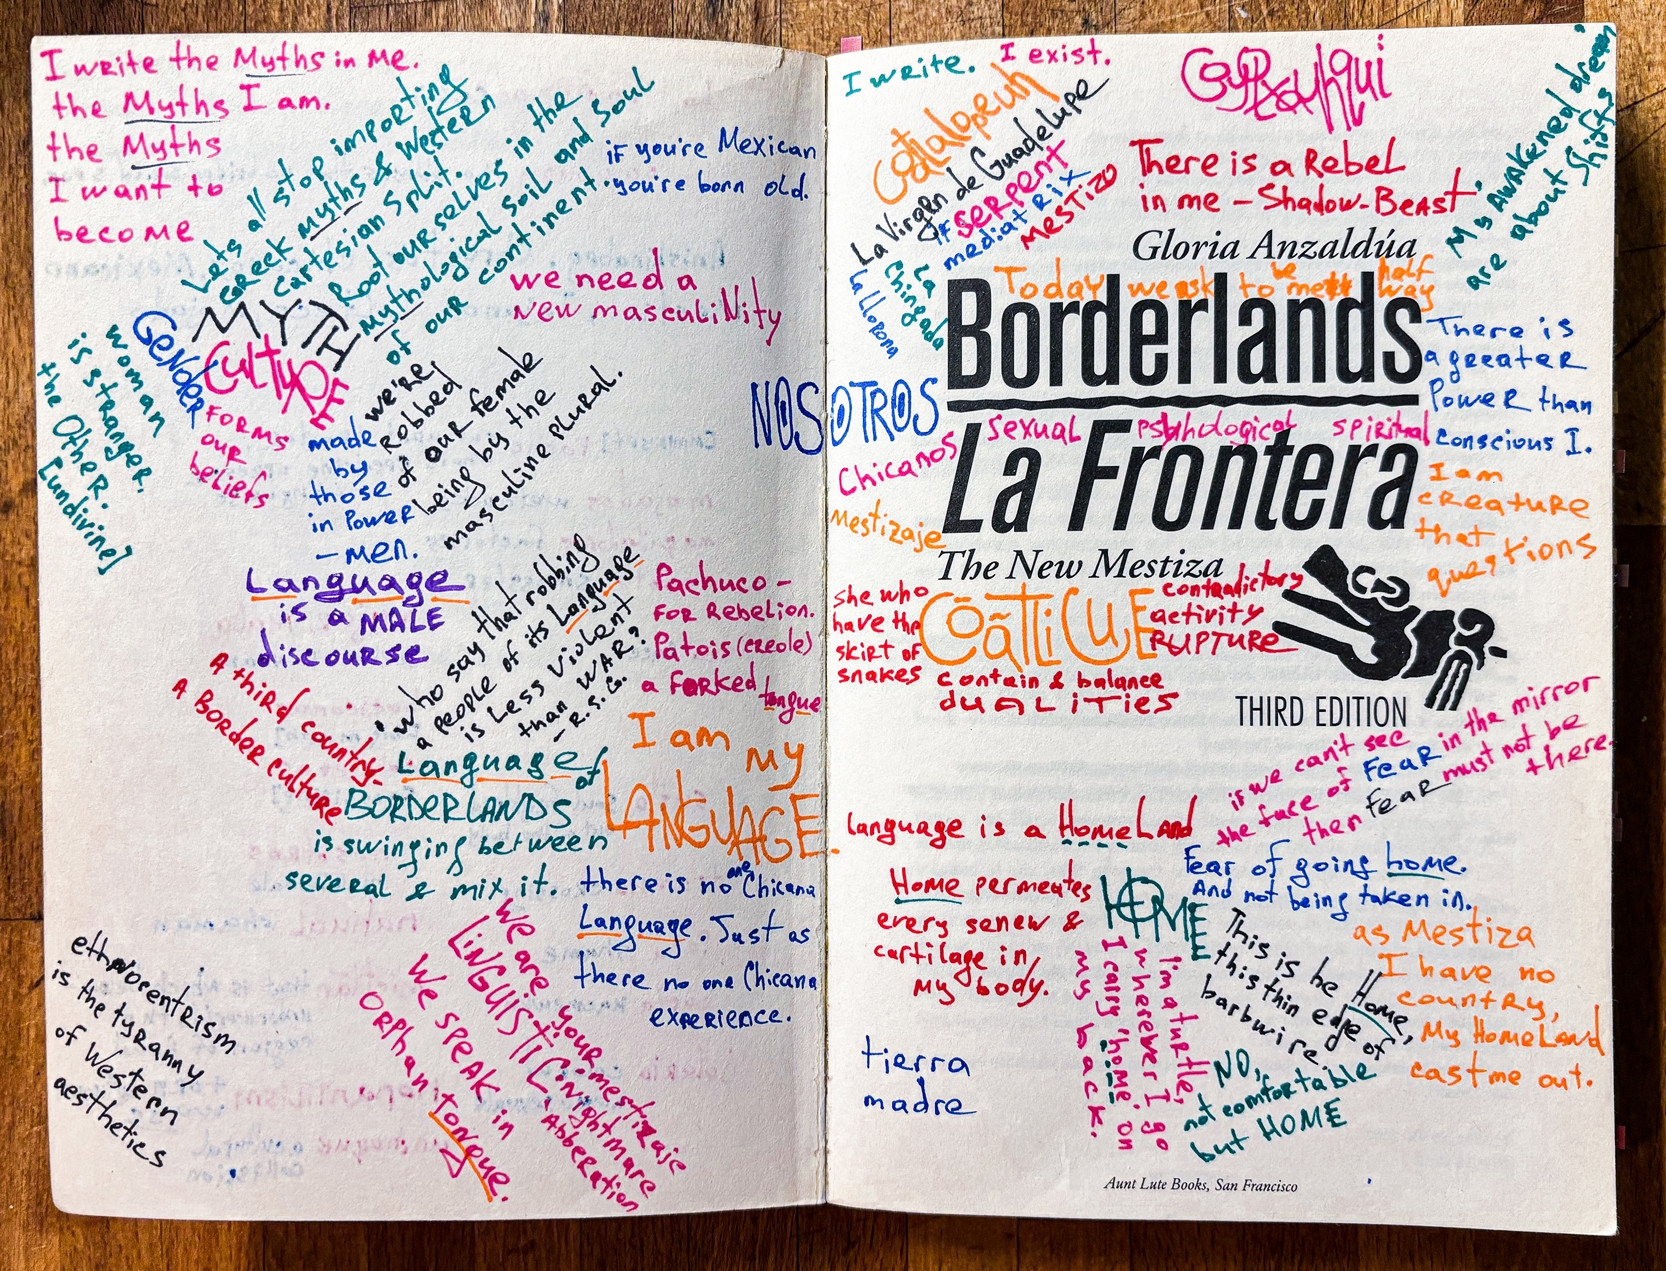 I write the Myths in Me.
the Myths I am.
the Myths
I want to
become
Let's all stop importing
Greek Myths & Western
Cartesian Split.
Root ourselves in the
Mythological Soil and Soul
of our continent.
if you're Mexican
you're born old.
we need a
new masculiNity
MYTH
GeNdER
CultuRE
FORMS
our
beliefs
made
by
those
in Power
– Men.
woman
is stranger.
the Other.
[undivine]
we're
Robbed
of our female
being by the
masculine plural.
Language
is a MALE
discourse
"who say that robbing
a people of its Language
is less violent
than WAR?
– R.S.G.
Pachuco –
FOR Rebelion.
Patois (creole)
a forked
tongue
A third country.
A BoRdeR culture
Language of
BORDERLANDS
is swinging between
several & mix it.
I am my
LANGUAGE.
there is no one Chicana
Language. Just as
there no one Chicana
experience.
We are your
LiNGUiSTiC Nightmare
your mestizaje
Abberation
We speak in
ORphan tongue.
ethnocentrism
is the tyranny
of Western
aesthetics
NOSOTROS
I write. I exist.
Coyolxauhqui
Coatlalopeuh
La Virgen de Guadelupe
if SERPENT
mediatRix
MESTIZO
La
Chingada
La llorona
There is a Rebel
in me – Shadow-Beast
My AWAKened dream
are about Shifts
Gloria Anzaldúa
Today we ask to be met half way
Borderlands
There is
a greater
Power than
conscious I.
sexual psyhological spiritual
Chicanos
La Frontera
I am
creature
that
questions
Mestizaje
The New Mestiza
she who
have the
skirt of
snakes
COãTliCUE
contradictory
activity
RUPTURE
contain & balance
dUALiTiES
THIRD EDITION
if we can't see
the face of FEAR in the mirror
then FEAR must not be
there.
Language is a HomeLand
Home permeates
every senew &
cartilage in
My body.
HOME
Fear of going home.
And not being taken in.
This is he Home,
this thin edge of
barbwire
as Mestiza
I have no
country,
My HomeLand
cast me out.
I'm a turtle,
wherever I go
I carry "home" on
my back.
NO,
not comfortable
but HOME
tierra
madre
Aunt Lute Books, San Francisco